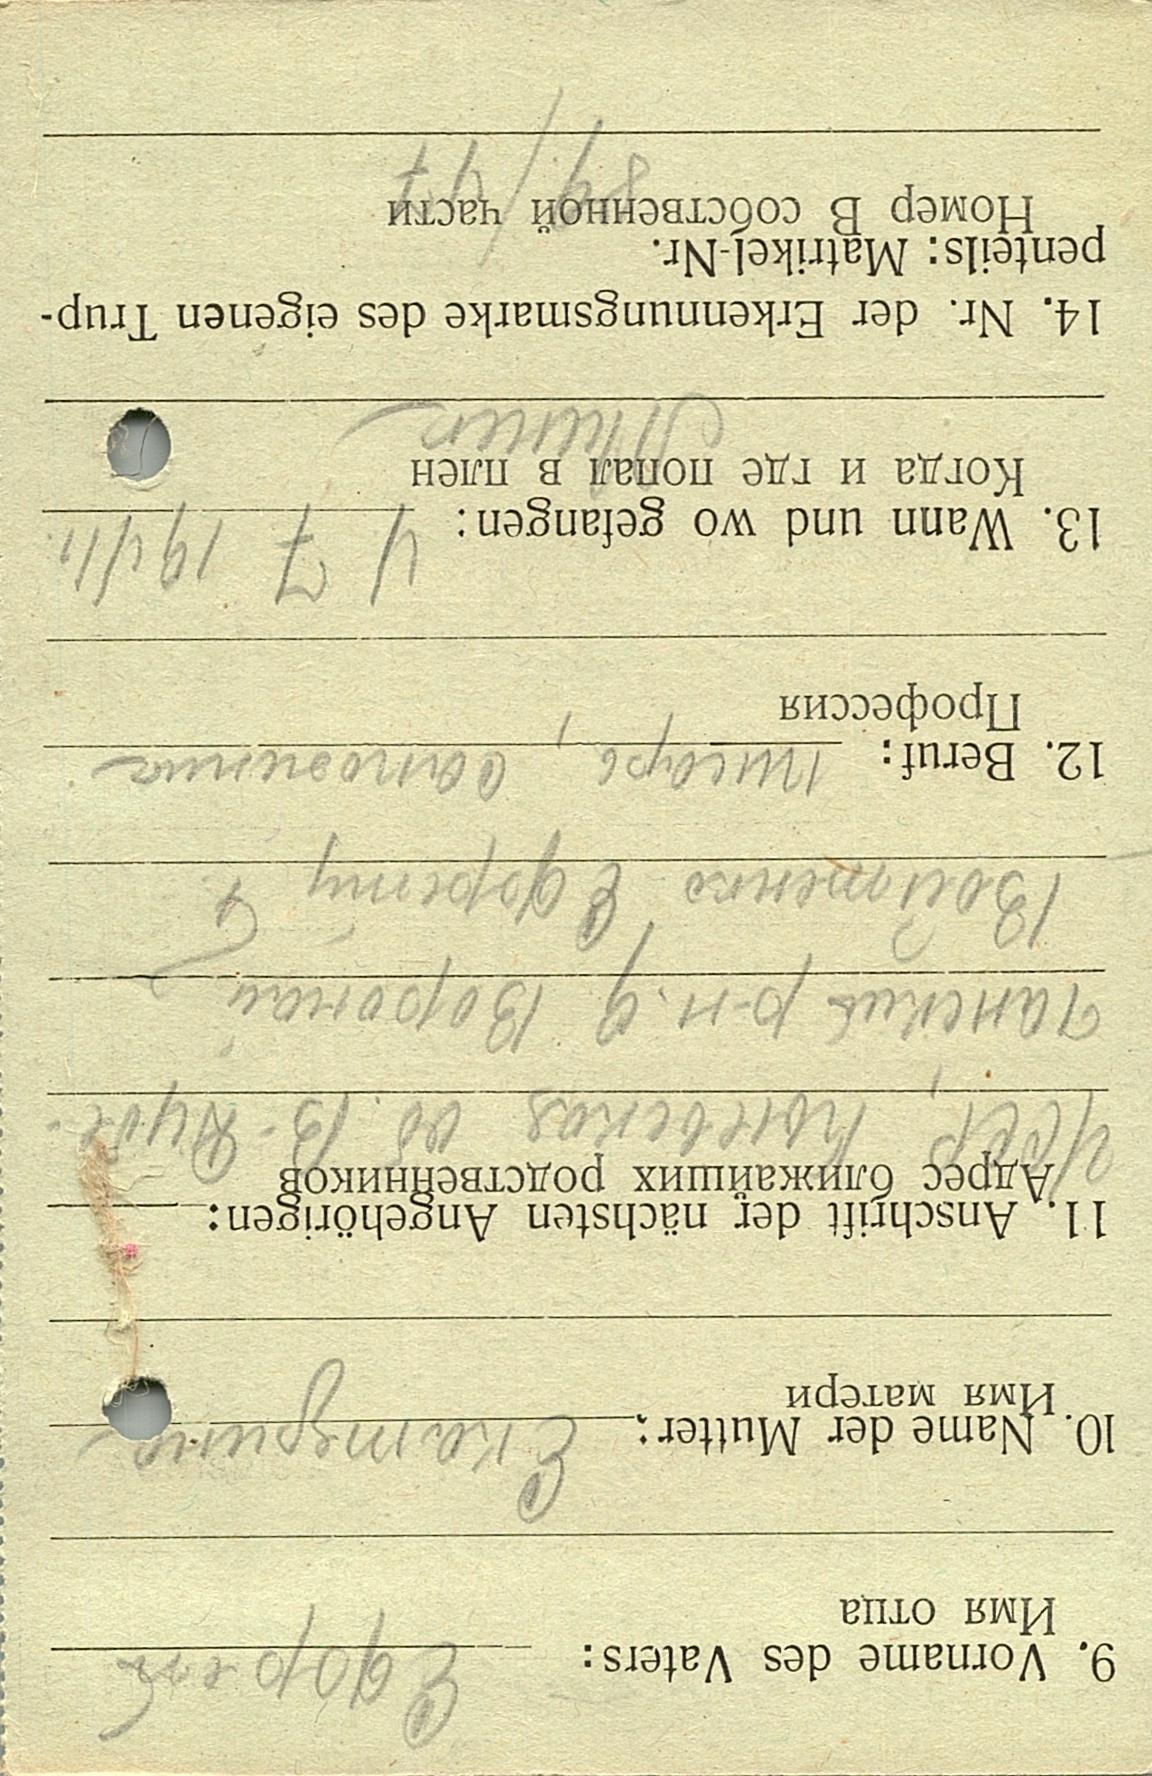 9. Vorname des Vaters: Ефрем
Имя отца
10. Name der Mutter: Екатерина
Имя матери
11. Anschrift der nächsten Angehörigen:
Адрес ближайших родственников
УССР, Киевская об. В.-Дубе-
чанский р-н. д Воропай
Войтенко Ефрему
12. Beruf: писарь,
Профессия
13. Wann und wo gefangen: 4 7 1941
Когда и где попал в плен
Минск
14. Nr. der Erkennungsmarke des eigenen Trup-
penteils: Matrikel-Nr.
Номер В собственной части